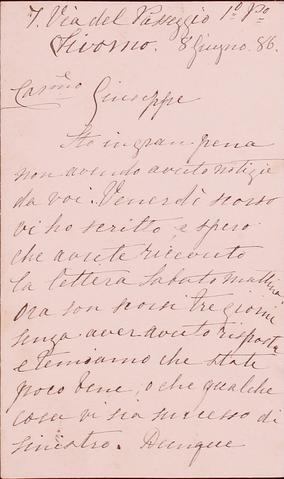 7. Via del Passeggio 1º Pº
Livorno. 8 Giugno. 86.
Carmo Giuseppe
Sto in gran pena
non avendo avuto notizie
da voi. Venerdì scorso
vi ho scritto e spero
che avete ricevuto
la lettera Sabato mattina
ora son scorsi tre giorni
senza aver avuto risposta
e temiamo che state
poco bene, o che qualche
cosa vi sia successo di
sinistro. Dunque